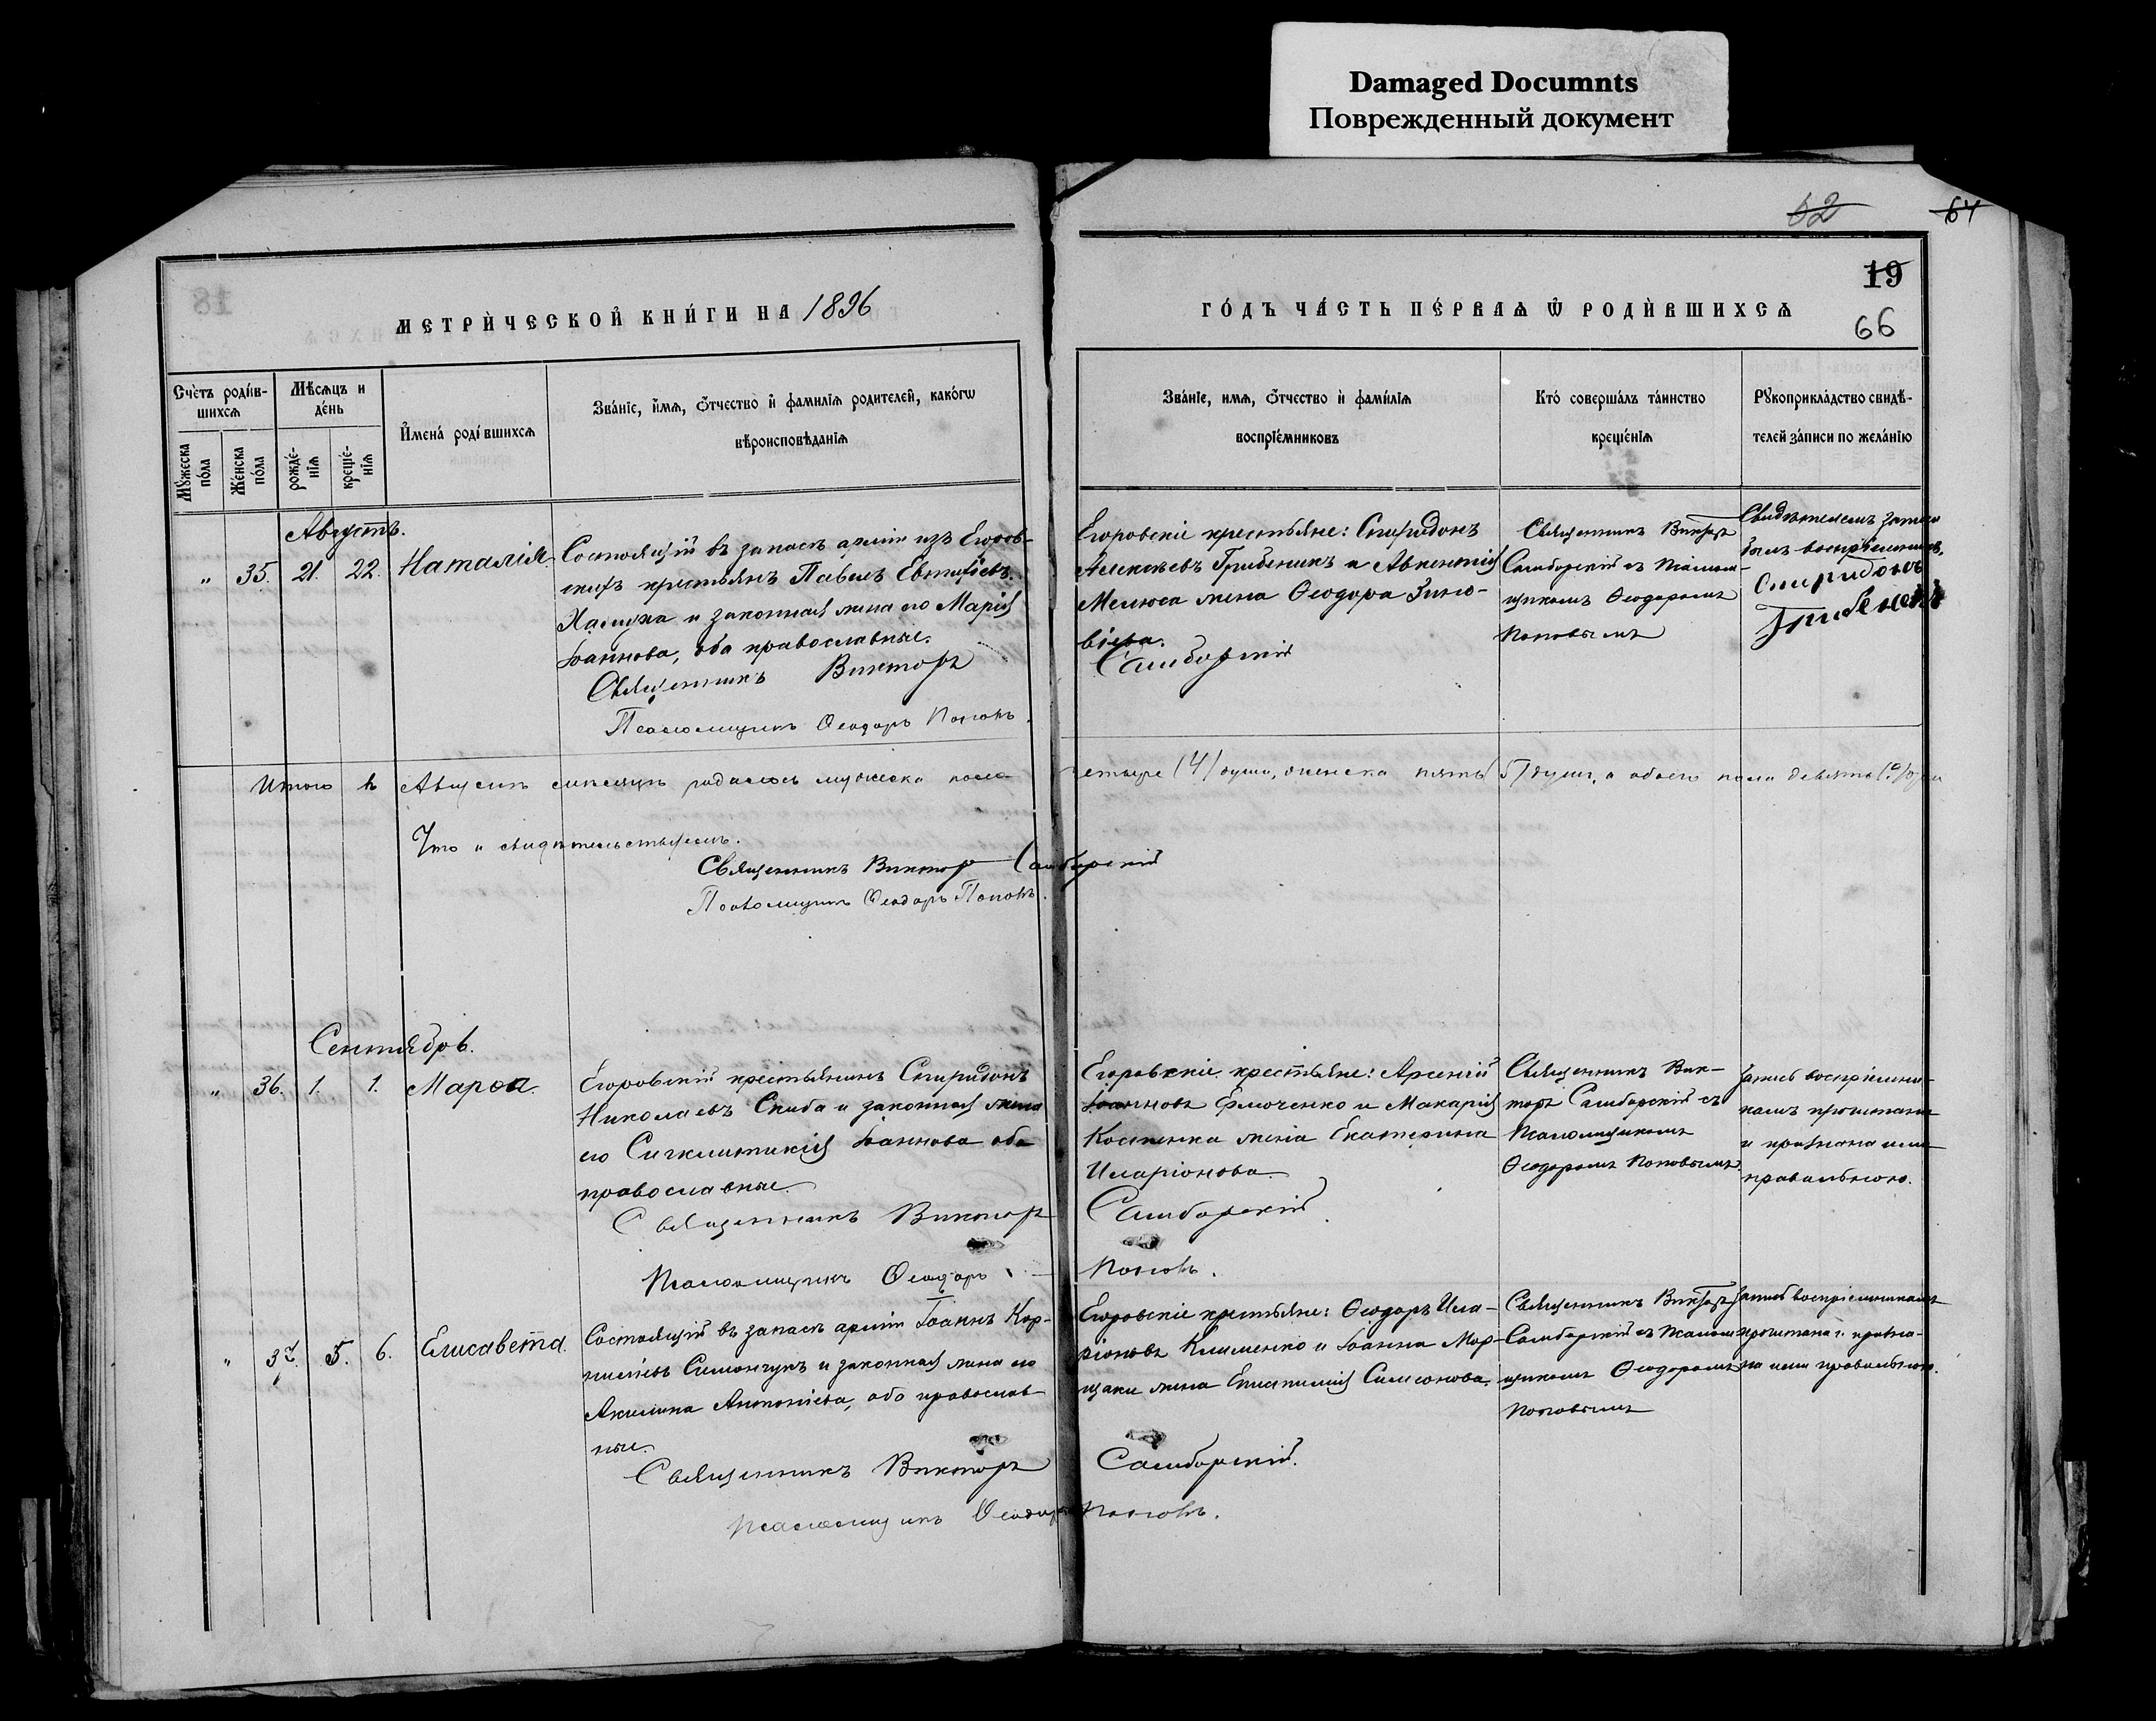 Damaged Documnts
Поврежденный документ
62 64
19
66
МЕТРИ́ЧЕСКОЙ КНИ́ГИ НА 1896
ГО́ДЪ ЧА́СТЬ ПЕ́РВАѦ Ѿ РОДИ́ВШИХСѦ
Сче́тъ роди́в-
шихсѧ
Мꙋжеска
по́ла
Же́нска
по́ла
Мѣ́сѧцъ и
де́нь
рожде́-
нїѧ
креще́-
нїѧ
И҆мена́ роди́вшихсѧ
Зва́нїе, и҆́мѧ, ѻ҆́тчество и҆ фамилїѧ родителей, како́гѡ
вѣроисповѣ́данїѧ
Зва́нїе, имѧ, ѻ҆́тчество и҆ фами́лїѧ
воспрїе́мниковъ
Кто́ соверша́лъ та́инство
креще́нїѧ
Рꙋкоприкла́дство свидѣ́-
телей за́писи по жела́нїю
Августъ.
„ 35. 21. 22. Наталія.
Состоящій въ запасѣ арміи изъ Егоров-
скихъ крестьянъ Павелъ Евтихіевъ
и законная жена его Марія
Іоаннова, оба православные.
Священникъ Викторъ Самборскій
Псаломщикъ Ѳеодоръ Поповъ.
Егоровскіе крестьяне: Спиридонъ
Алексѣевъ Грибеникъ и Авксентія
Мелюса жена Ѳеодора Зино-
віева.
Священникъ Викторъ
Самборскій съ псалом-
щикомъ Ѳеодоромъ
Поповымъ
Свидѣтелемъ записи
былъ воспріемникъ,
Спиридонъ
Грибеникъ
Итого въ Августѣ мѣсяцѣ родилось мужеска пола четыре (4) души, женска пять (5) душъ, а обоего пола девять (9) душъ
Что и свидѣтельствуемъ.
Священникъ Викторъ Самборскій
Псаломщикъ Ѳеодоръ Поповъ.
Сентябрь.
„ 36. 1. 1. Марѳа.
Егоровскій крестьянинъ Спиридонъ
Николаевъ Скиба и законная жена
его Сигклитикія Іоаннова оба
православные.
Священникъ Викторъ Самборскій
Псаломщикъ Ѳеодоръ Поповъ.
Егоровскіе крестьяне: Арсеній
Іоанновъ Ермоченко и Макарія
Костенка жена Екатерина
Иларіонова.
Священникъ Вик-
торъ Самборскій съ
псаломщикомъ
Ѳеодоромъ Поповымъ.
Запись воспріемни-
камъ прочитана
и признана ими
правильною.
„ 37. 5. 6. Елисавета.
Состоящій въ запасѣ арміи Іоаннъ Кор-
ниліевъ Симончукъ и законная жена его
Акилина Антоніева, оба православ-
ные.
Священникъ Викторъ Самборскій.
Псаломщикъ Ѳеодоръ Поповъ.
Егоровскіе крестьяне: Ѳеодоръ Ила-
ріоновъ Клименко и Іоанна Мор-
щаки жена Епистимія Симеонова.
Священникъ Викторъ
Самборскій съ псалом-
щикомъ Ѳеодоромъ
Поповымъ
Запись воспріемникамъ
прочитана и призна-
на ими правильною.